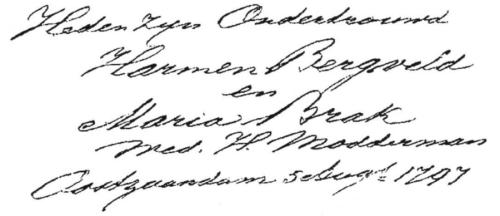 Heden zyn Ondertrouwd
Harmen Bergveld
en
Maria Brak
Med. H. Modderman
Oostzaandam 5 Augt. 1797